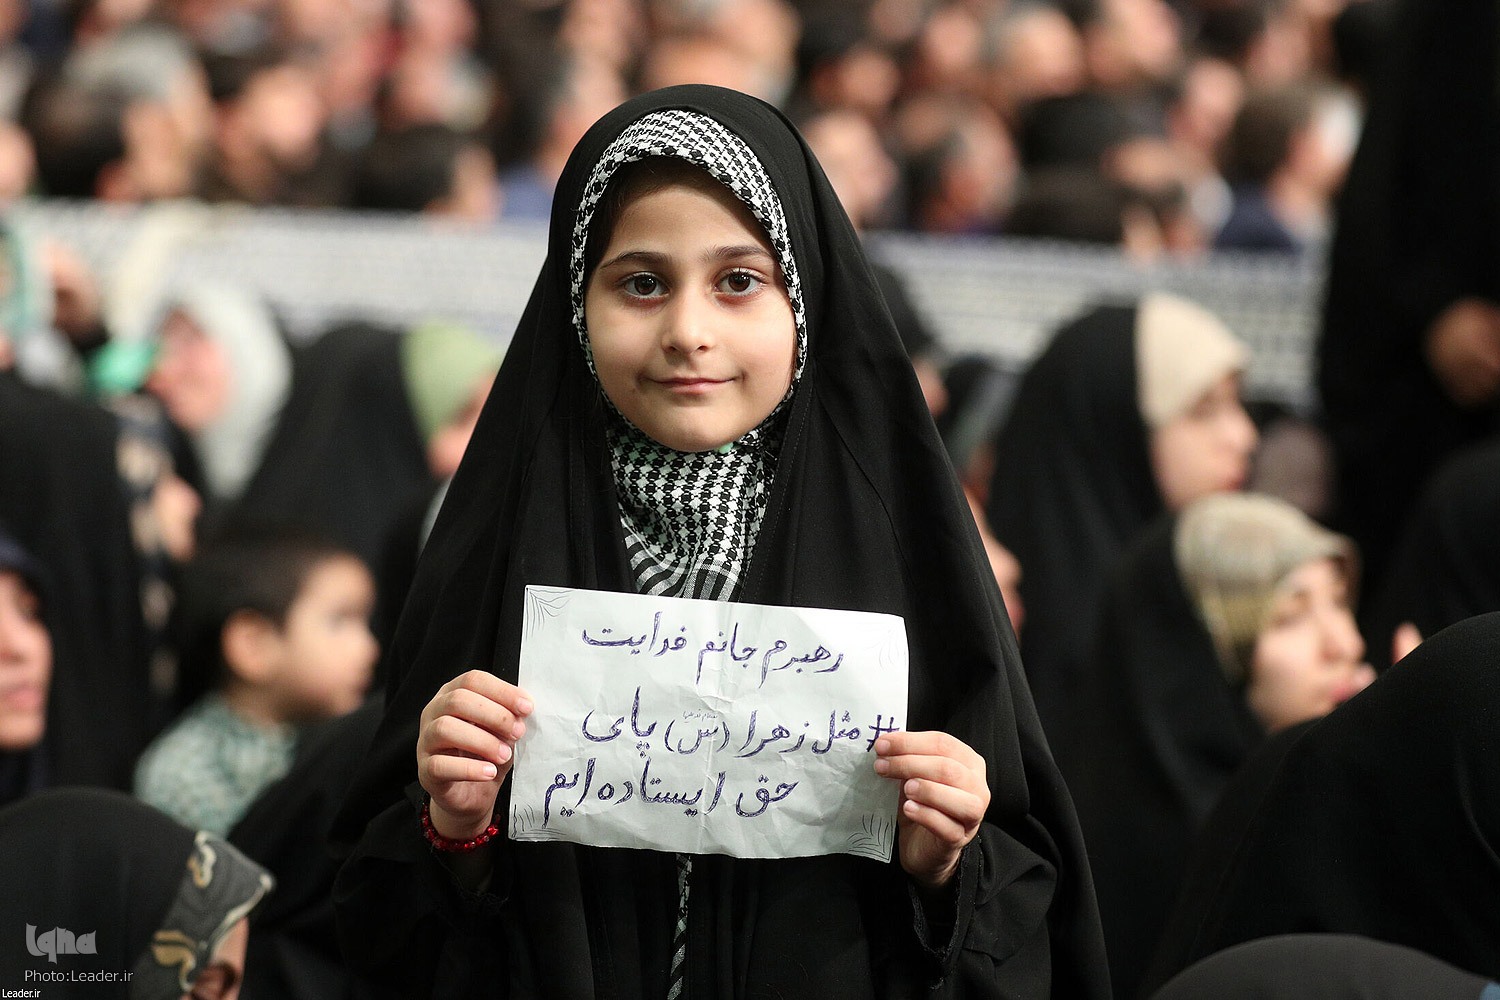 رهبرم جانم فدایت
#مثل زهرا (س) پای
حق ایستاده ایم
iqna
Photo:Leader.ir
Leader.ir